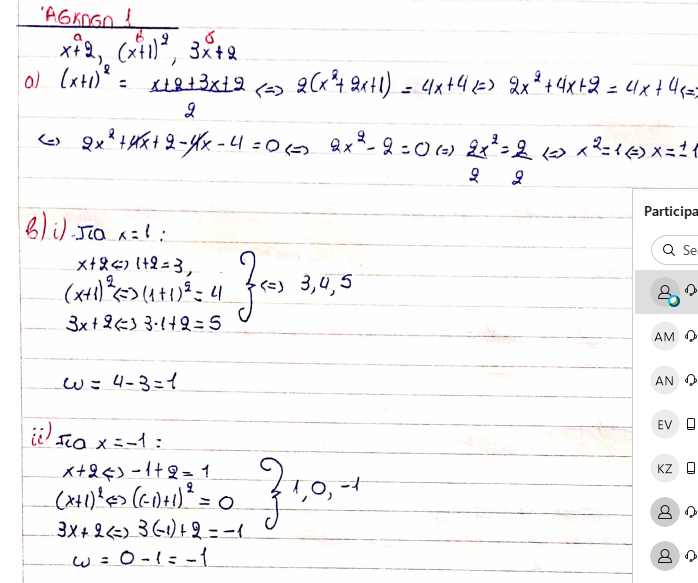 Άσκηση 1
α β δ
x+2, (x+1)², 3x+2
α) (x+1)² = x+2+3x+2 / 2 <=> 2(x²+2x+1) = 4x+4 <=> 2x²+4x+2 = 4x+4 <=>
<=> 2x²+4x+2-4x-4=0 <=> 2x²-2=0 <=> 2x²/2=2/2 <=> x²=1 <=> x=±1
β) i) Για x=1:
x+2 <=> 1+2=3,
(x+1)² <=> (1+1)² = 4 } <=> 3,4,5
3x+2 <=> 3·1+2=5
ω = 4-3=1
ii) Για x=-1:
x+2 <=> -1+2=1
(x+1)² <=> ((-1)+1)² = 0 } 1,0,-1
3x+2 <=> 3(-1)+2=-1
ω = 0-1=-1
Participa
Sea
AM
AN
EV
KZ